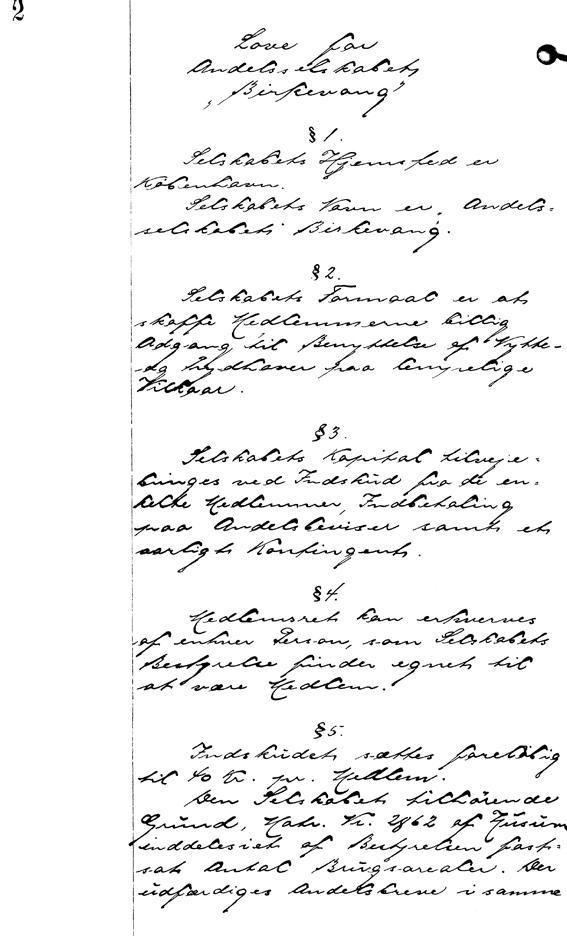 2
Love for
Andelsselskabets
„Birkevang"
§ 1.
Selskabets Hjemsted er
København.
Selskabets Navn er „Andels=
selskabet" Birkevang.
§ 2.
Selskabets Formaal er at
skaffe Medlemmerne billig
Adgang til Benyttelse af Nytte-
og Lysthaver paa lempelige
Vilkaar.
§ 3.
Selskabets Kapital tilveje=
bringes ved Indskud fra de en=
kelte Medlemmer, Indbetaling
paa Andelsbeviser samt et
aarligt Kontingent.
§ 4.
Medlemsret kan erhverves
af enhver Person, som Selskabets
Bestyrelse finder egnet til
at være Medlem.
§ 5.
Indskudet sættes foreløbig
til 40 Kr. pr. Medlem.
Den Selskabet tilhörende
Grund, Matr. Nr. 2862 af Husum
inddeles i et af Bestyrelsen fast=
sat Antal Brugsarealer. Der
udfærdiges Andelsbreve i samme